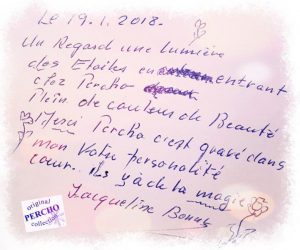 Le 19.1.2018.
Un Regard une Lumière
des Etoiles en entrant
chez Percho
Plein de couleurs de Beauté
Merci Percho c'est gravé dans
mon Votre personalité
cœur. Ils y à de la magie
Jacqueline
original
PERCHO
collection